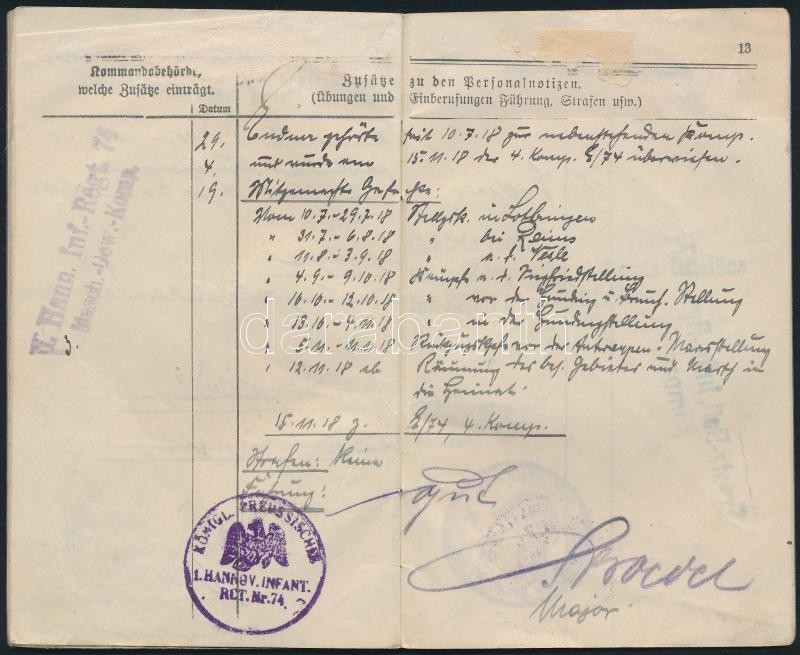 13
Kommandobehörde,
welche Zusätze einträgt.
Datum
Zusätze zu den Personalnotizen.
(Übungen und Einberufungen Führung, Strafen usw.)
29. gehörte seit 10.7.18 zur nebenstehenden Komp.
4. und wurde am 15.11.18 der 4. Komp. E/74 überwiesen.
19. Mitgemachte Gefechte:
Vom 10.7.-29.7.18 Stellgsk. in Lothringen
" 31.7.-6.8.18 " bei Reims
" 11.8.-3.9.18 " a. d. Vesle
" 4.9.-9.10.18 Kämpfe a. d. Siegfriedstellung
" 10.10.-12.10.18 " vor der Hunding u. Brunh. Stellung
" 13.10.-4.11.18 " in der Hundingstellung
" 5.11.-11.11.18 vor der Antwerpen-Maasstellung
" 12.11.18 ab Räumung des bes. Gebietes und Marsch in
die Heimat
15.11.18 z. E/74, 4. Komp.
Strafen: Keine
Führung: gut
Major
Hann. Inf.-Regt. 74
Masch.-Gew.-Komp.
KÖNIGL. PREUSSISCHES
1. HANNOV. INFANT.
RGT. Nr. 74.
darabanth